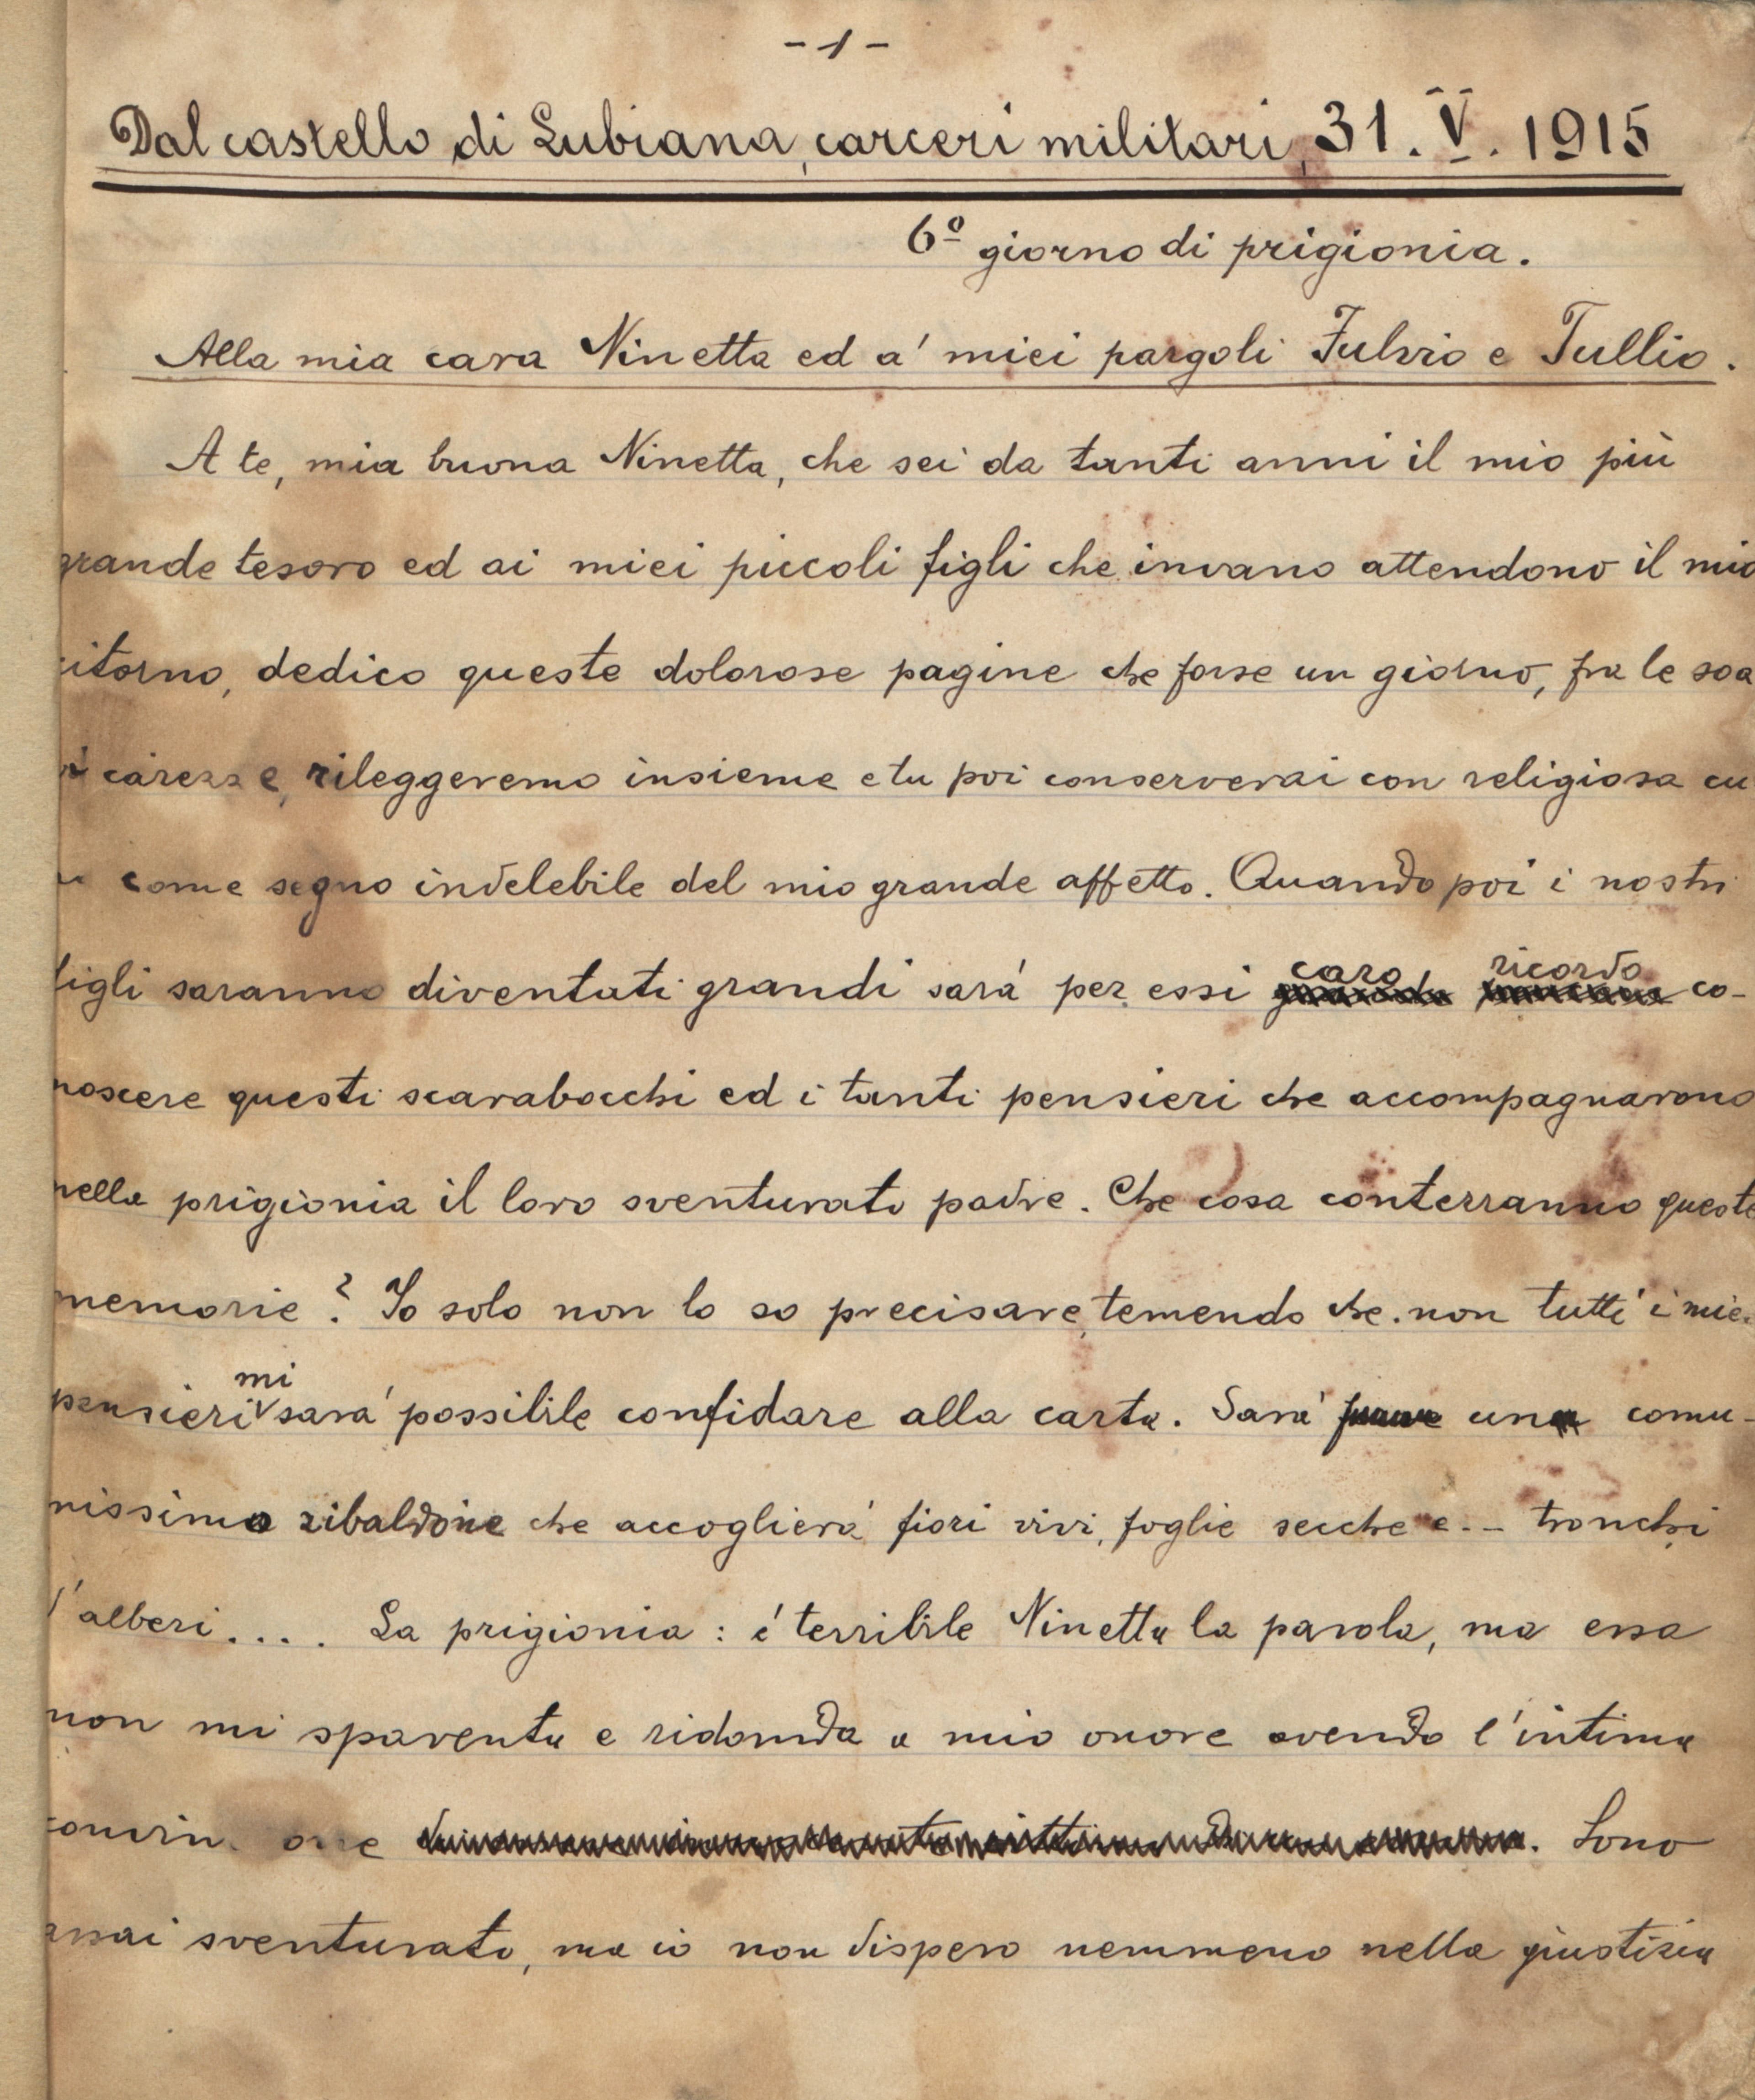 - 1 -
Dal castello di Lubiana, carceri militari, 31. V. 1915
6º giorno di prigionia.
Alla mia cara Ninetta ed a' miei pargoli Fulvio e Tullio.
A te, mia buona Ninetta, che sei da tanti anni il mio più
grande tesoro ed ai miei piccoli figli che invano attendono il mio
ritorno, dedico queste dolorose pagine che forse un giorno, fra le soa
vi carezze, rileggeremo insieme e tu poi conserverai con religiosa cu
ra come segno indelebile del mio grande affetto. Quando poi i nostri
figli saranno diventati grandi sará per essi caro ricordo co-
noscere questi scarabocchi ed i tanti pensieri che accompagnarono
nella prigionia il loro sventurato padre. Che cosa conterranno queste
memorie? Io solo non lo so precisare, temendo che non tutti i miei
pensieri mi sará possibile confidare alla carta. Sará un comu-
nissimo zibaldone che accoglierá fiori vivi, foglie secche e... tronchi
d'alberi.... La prigionia: é terribile Ninetta la parola, ma essa
non mi spaventa e ridonda a mio onore avendo l'intima
. Sono
assai sventurato, ma io non dispero nemmeno nella giustizia